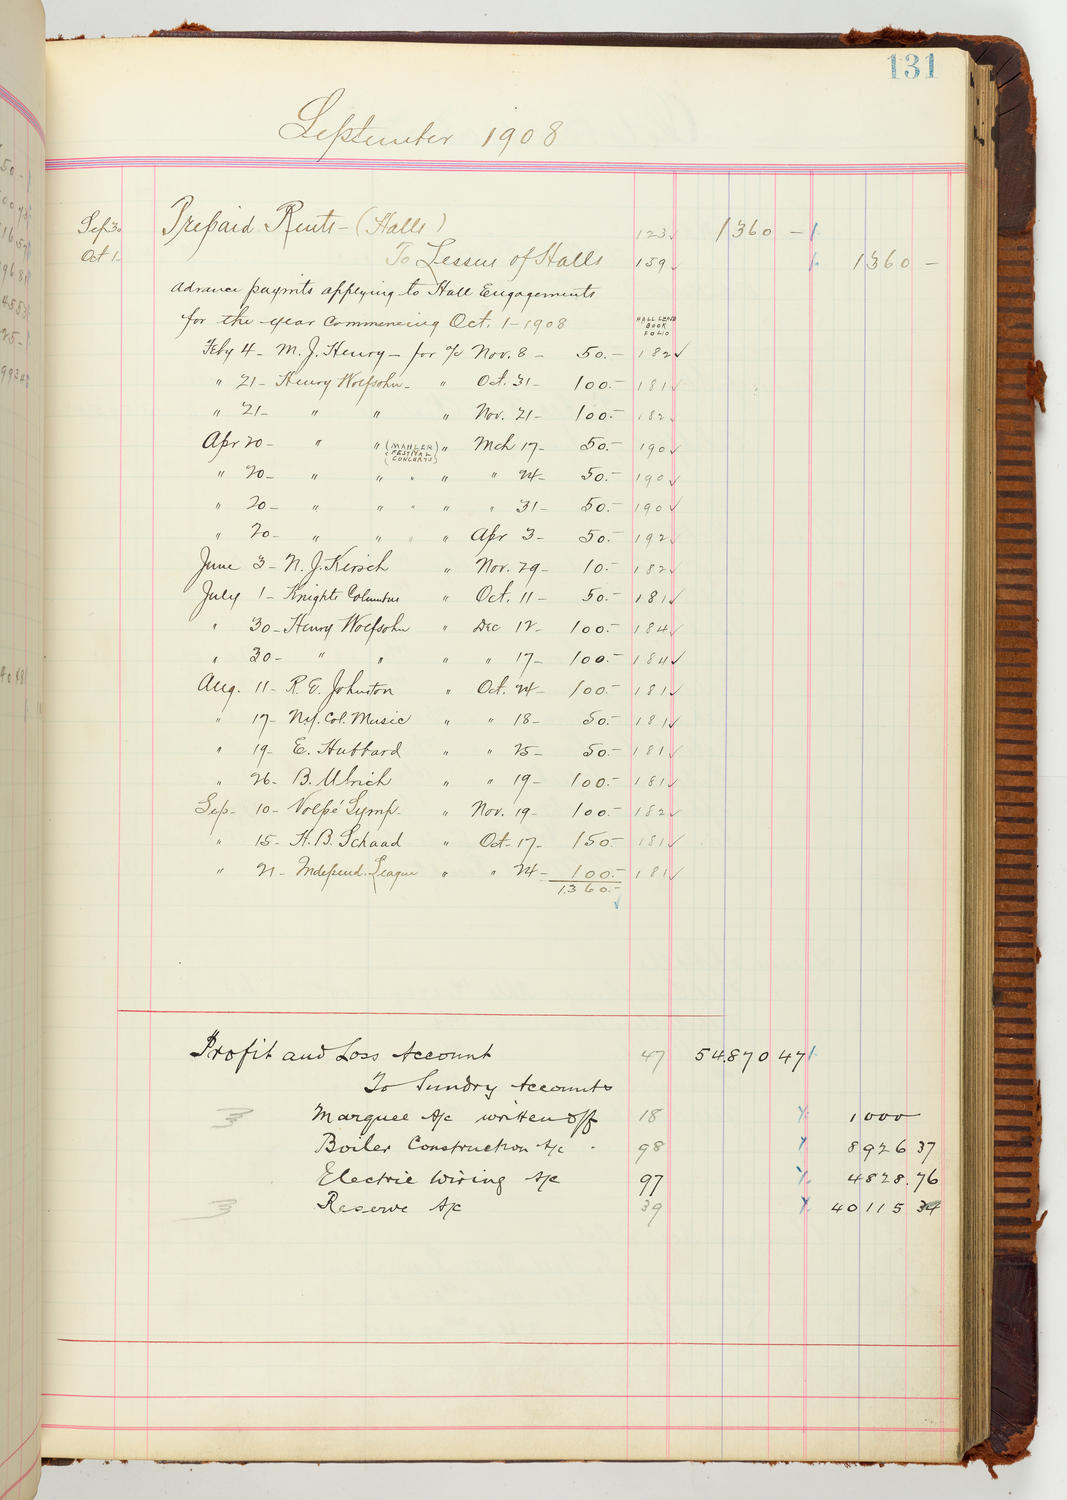 131
September 1908
Sep 30 Prepaid Rents - (Halls) 123 1360 -
Oct 1 - To Lessees of Halls 159 1360 -
advance paymts applying to Hall Engagements
for the year commencing Oct. 1 - 1908 HALL LEASE BOOK FOLIO
Feby 4 - M. J. Henry - for a/c Nov. 8 - 50. - 182
" 21 - Henry Wolfsohn - " Oct. 31 - 100. - 181
" 21 - " " " Nov. 21 - 100. - 182
Apr 20 - " " (MAHLER FESTIVAL CONCERTS) " Mch 17 - 50. - 190
" 20 - " " " " " 24 - 50. - 190
" 20 - " " " " " 31 - 50. - 190
" 20 - " " " " Apr 3 - 50. - 192
June 3 - N. J. Kirsch " Nov. 29 - 10. - 182
July 1 - Knights Columbus " Oct. 11 - 50. - 181
" 30 - Henry Wolfsohn " Dec 12 - 100. - 184
" 30 - " " " " 17 - 100. - 184
Aug. 11 - R. E. Johnston " Oct. 24 - 100. - 181
" 17 - N.Y. Col. Music " " 18 - 50. - 181
" 19 - E. Hubbard " " 25 - 50. - 181
" 26 - B. Ulrich " " 19 - 100. - 181
Sep - 10 - Volpé Symp. " Nov. 19 - 100. - 182
" 15 - H. B. Schaad " Oct - 17 - 150. - 181
" 21 - Independ. League " " 24 - 100. - 181
1360. -
Profit and Loss Account 47 54870 47
To Sundry Accounts
Marquee A/c written off 18 1000
Boiler Construction A/c - 98 8926 37
Electric Wiring A/c 97 4828.76
Reserve A/c 39 40115 34